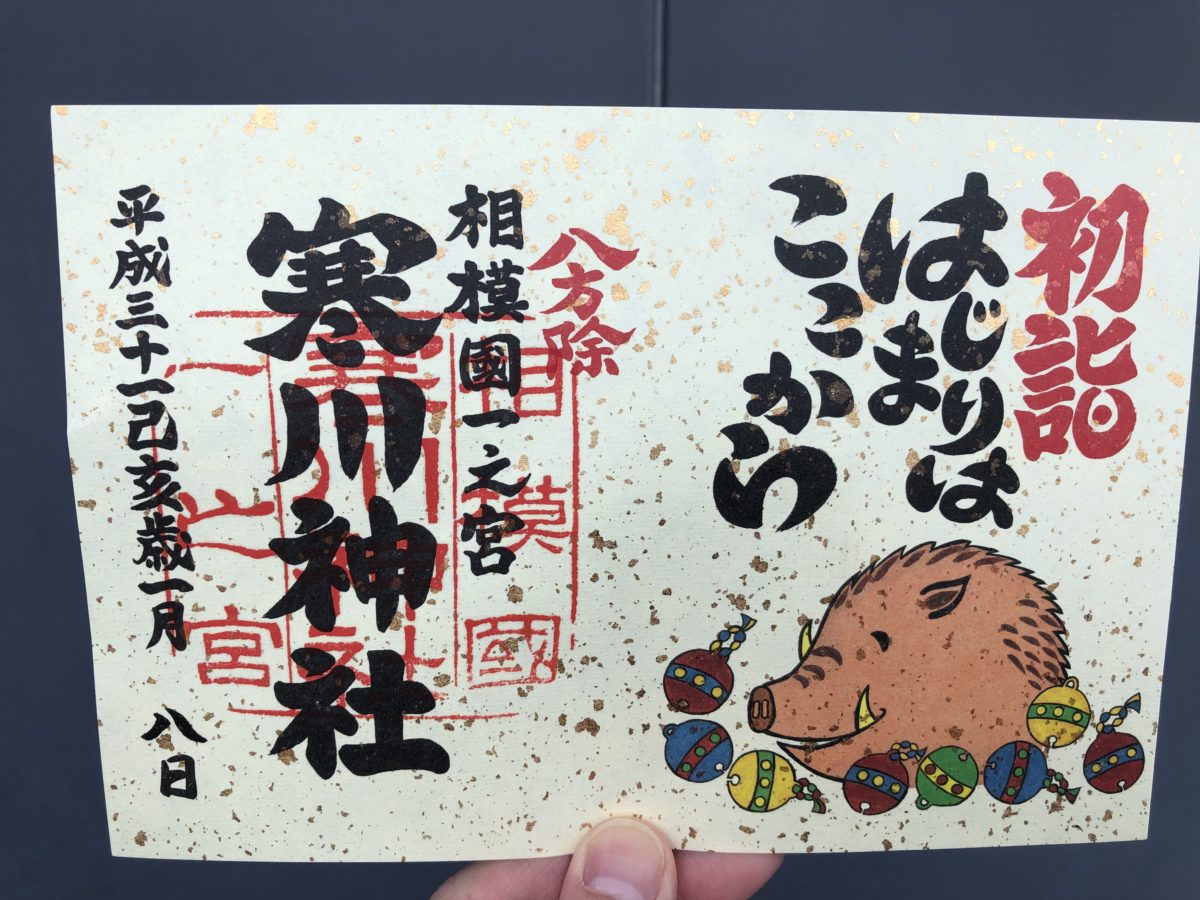 初詣
はじまりは
はじまりは
ここから
八方除
相模國一之宮
寒川神社
平成三十一己亥歳一月 八日
相模國
寒川神社
一之宮